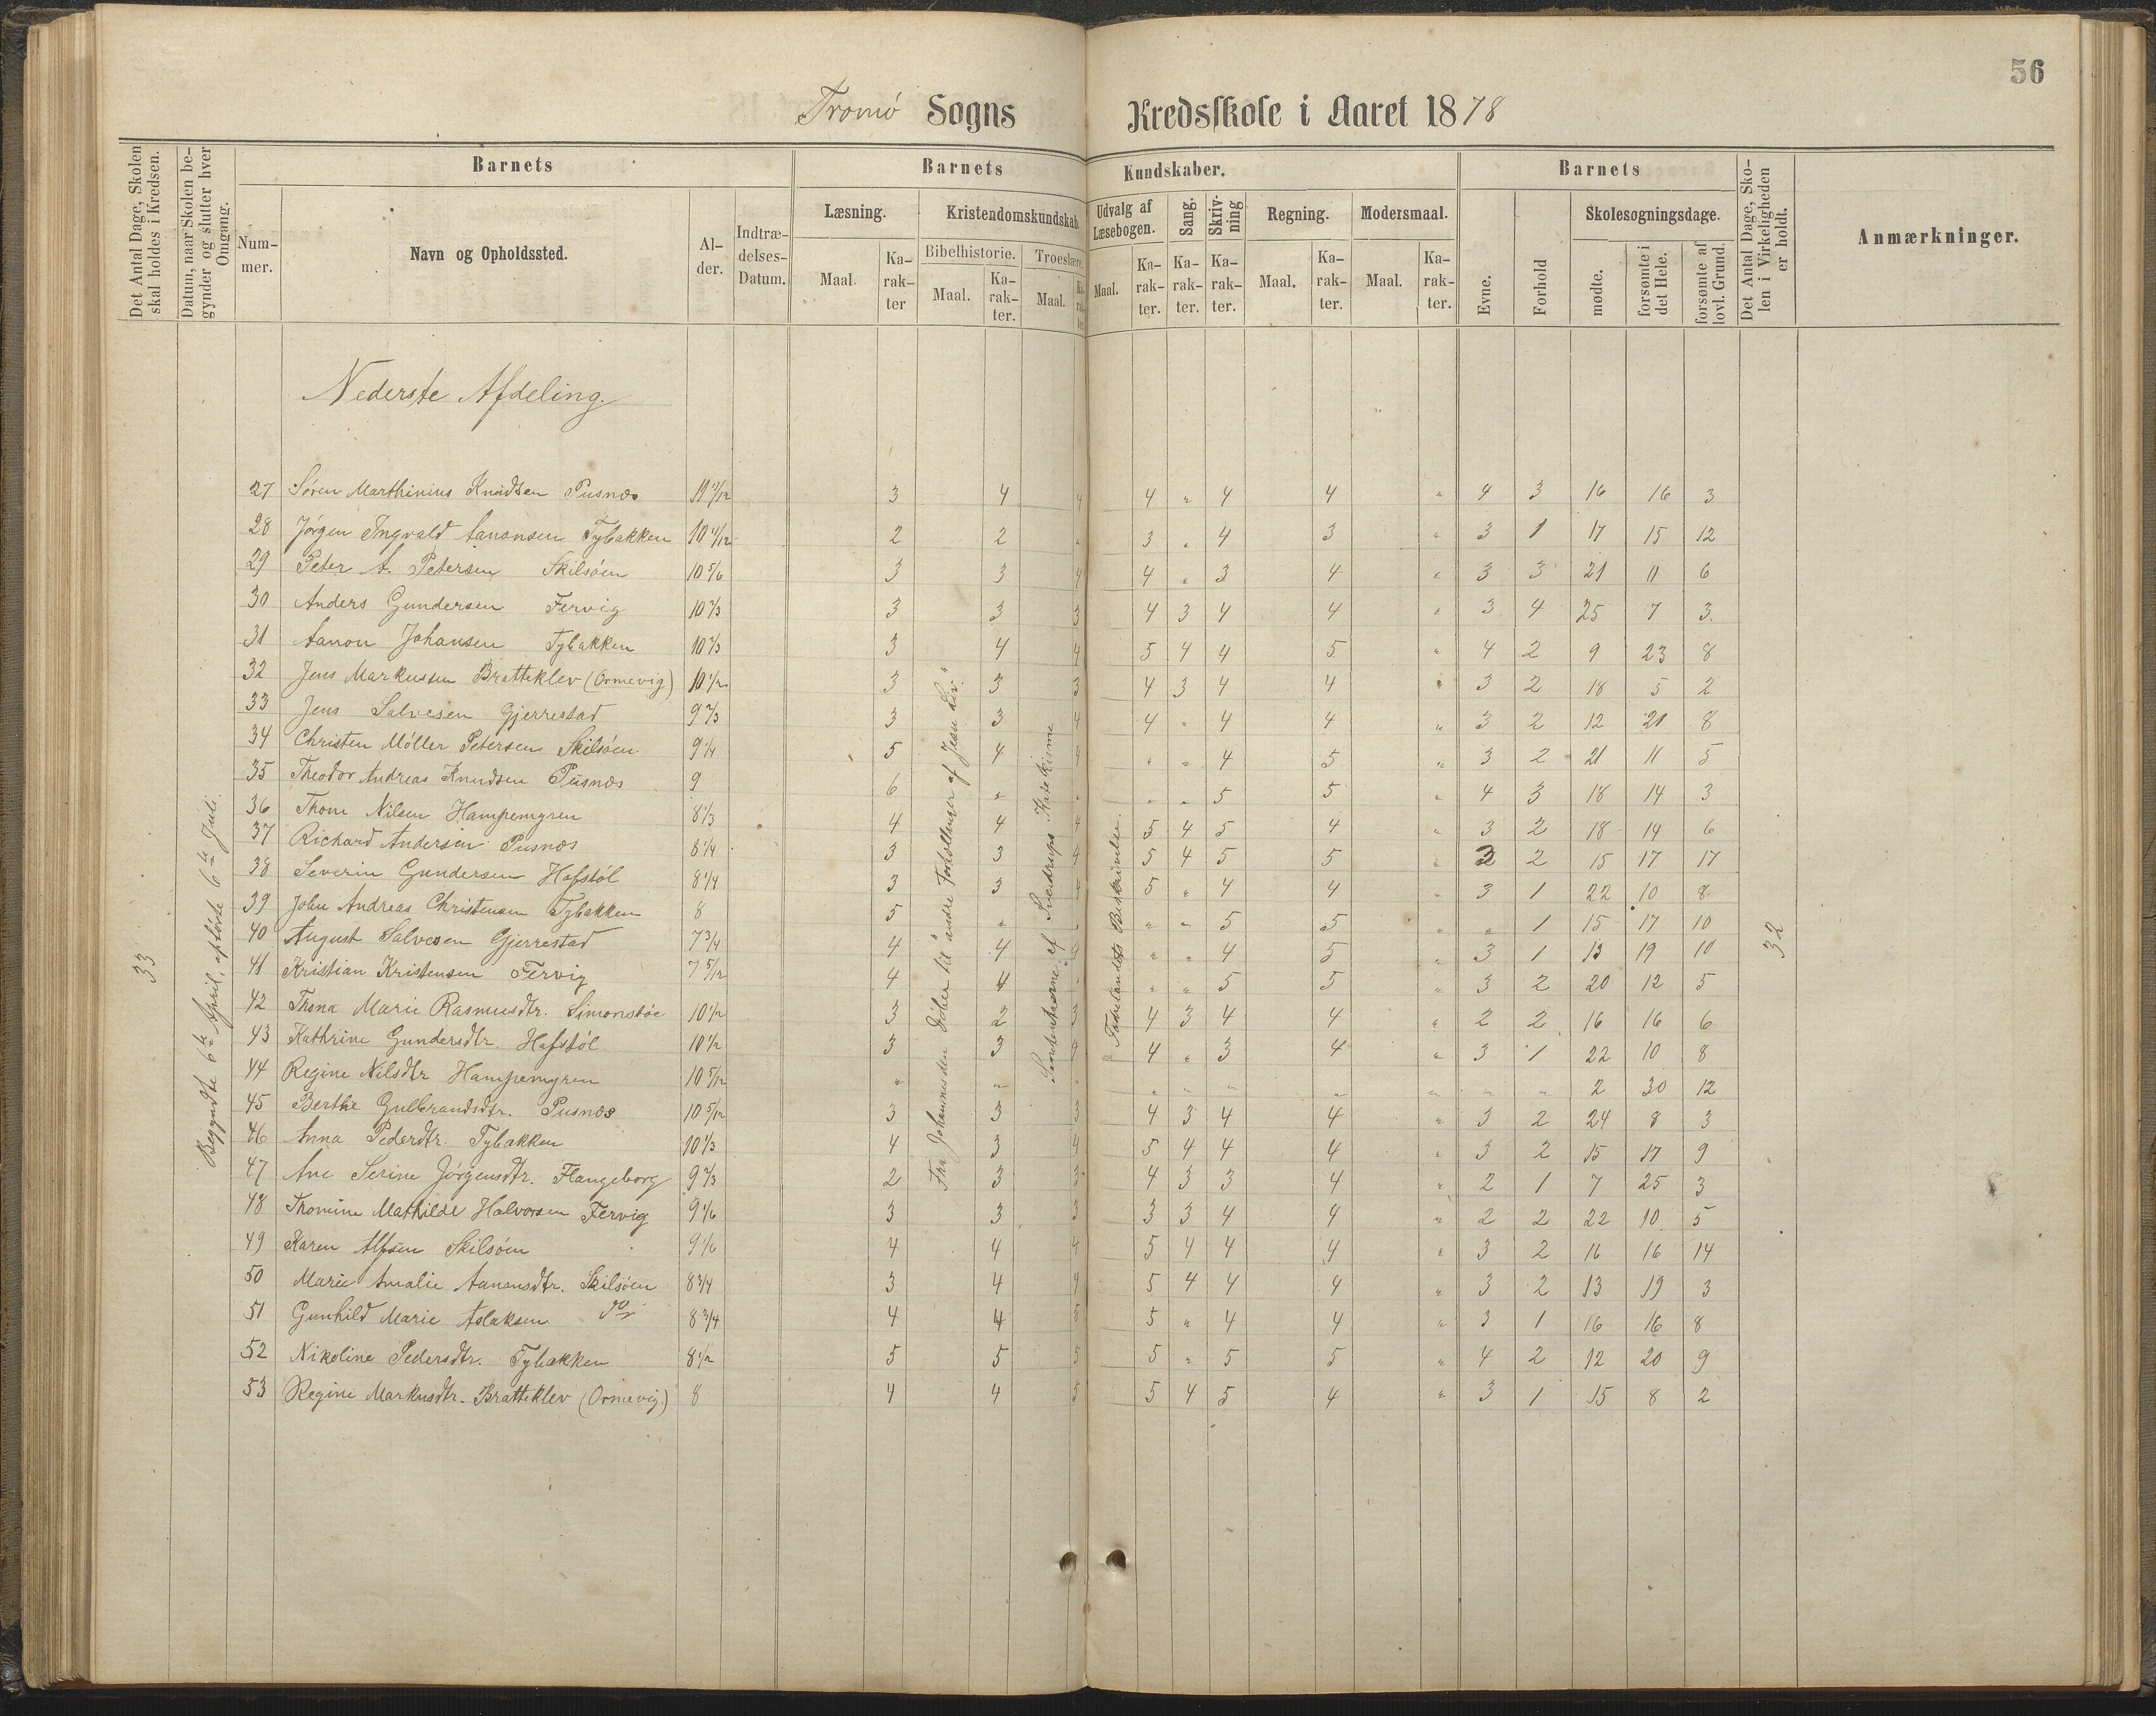 56
Tromø Sogns Kredsskole i Aaret 1878
Det Antal Dage, Skolen skal holdes i Kredsen.
Datum, naar Skolen begynder og slutter hver Omgang.
Barnets
Nummer.
Navn og Opholdssted.
Alder.
Indtrædelses-Datum.
Barnets Kundskaber.
Læsning.
Maal.
Karakter
Kristendomskundskab.
Bibelhistorie.
Maal.
Karakter.
Troeslære.
Maal.
Karakter.
Udvalg af Læsebogen.
Maal.
Karakter.
Sang.
Karakter.
Skrivning
Karakter.
Regning.
Maal.
Karakter.
Modersmaal.
Maal.
Karakter.
Barnets
Evne.
Forhold
Skolesøgningsdage.
mødte.
forsømte i det Hele.
forsømte af lovl. Grund.
Det Antal Dage, Skolen i Virkeligheden er holdt.
Anmærkninger.
Nederste Afdeling.
33
Begyndte 6te April, ophørte 6te Juli.
Fra Johannes den Døber til "andre Fortællinger af Jesu Liv."
Sverdrups Katekisme
Fædrelandets Beskrivelse.
32
27 Søren Marthinius Knudsen Pusnæs 11 1/12 3 4 4 4 " 4 4 " 4 3 16 16 3
28 Jørgen Ingvald Aanonsen Tybakken 10 11/12 2 2 " 3 " 4 3 " 3 1 17 15 12
29 Peter A. Petersen Skilsøen 10 5/6 3 3 4 4 " 3 4 " 3 3 21 11 6
30 Anders Gundersen Fervig 10 2/3 3 3 3 4 3 4 4 " 3 4 25 7 3
31 Aanon Johansen Tybakken 10 2/3 3 4 4 5 4 4 5 " 4 2 9 23 8
32 Jens Markussen Bratteklev (Ormevig) 10 1/2 3 3 3 4 3 4 4 " 3 2 18 5 2
33 Jens Salvesen Gjerrestad 9 2/3 3 3 4 4 " 4 4 " 3 2 12 21 8
34 Christen Møller Petersen Skilsøen 9 1/4 5 4 4 " " 4 5 " 3 2 21 11 5
35 Theodor Andreas Knudsen Pusnæs 9 6 " " " " 5 5 " 4 3 18 14 3
36 Thom Nilsen Hampemyren 8 1/3 4 4 4 5 4 5 4 " 3 2 18 14 6
37 Richard Andersen Pusnæs 8 1/4 3 3 4 5 4 5 5 " 3 2 15 17 17
38 Severin Gundersen Hofstøl 8 1/4 3 3 4 5 " 4 4 " 3 1 22 10 8
39 John Andreas Christensen Tybakken 8 5 " " " " 5 5 " " 1 15 17 10
40 August Salvesen Gjerrestad 7 3/4 4 4 " " " 4 5 " 3 1 13 19 10
41 Kristian Kristensen Fervig 7 5/12 4 4 " " " 5 5 " 3 2 20 12 5
42 Thona Marie Rasmusdtr. Simonsbøe 10 1/2 3 2 3 4 3 4 4 " 2 2 16 16 6
43 Kathrine Gundersdtr. Hofstøl 10 1/2 3 3 4 4 " 3 4 " 3 1 22 10 8
44 Regine Nilsdtr Hampemyren 10 5/12 " " " " " " " " " " 2 30 12
45 Berthe Gulbrandsdtr. Pusnæs 10 5/12 3 3 3 4 3 4 4 " 3 2 24 8 3
46 Anna Pedersdtr. Tybakken 10 1/3 4 3 4 5 4 4 4 " 3 2 15 17 9
47 Ane Serine Jørgensdtr. Flangeborg 9 2/3 2 3 3 4 3 3 4 " 2 1 7 25 3
48 Thomine Mathilde Halvorsen Fervig 9 1/6 3 3 3 3 3 4 4 " 2 2 22 10 5
49 Karen Alfsen Skilsøen 9 1/6 4 4 4 5 4 4 4 " 3 2 16 16 14
50 Marie Amalie Aanonsdtr. Skilsøen 8 3/4 3 4 4 5 4 4 4 " 3 2 13 19 3
51 Gunhild Marie Aslaksen do 8 3/4 4 4 5 5 " 4 4 " 3 1 16 16 8
52 Nikoline Pedersdtr. Tybakken 8 1/2 5 5 5 5 " 5 5 " 4 2 12 20 9
53 Regine Markusdtr. Bratteklev (Ormevig.) 8 4 4 5 5 4 5 4 " 3 1 15 8 2